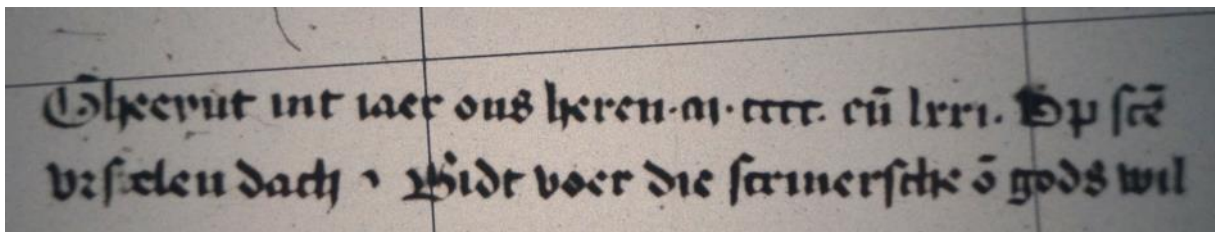 Gheeynt int iaer ons heren·m·cccc. eñ lxxi. Op scē
vrselen dach Bidt voer die scriuersche ō gods wil